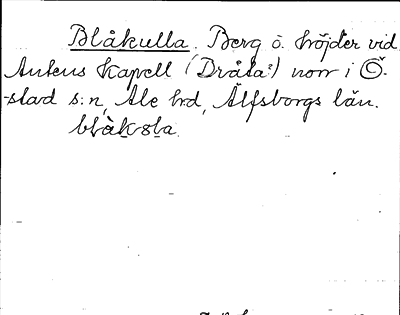 Blåkulla, Berg o. höjder vid
Antens Kapell (Dråta?) norr i Ö-
-stad s:n, Ale hrd, Älfsborgs län.